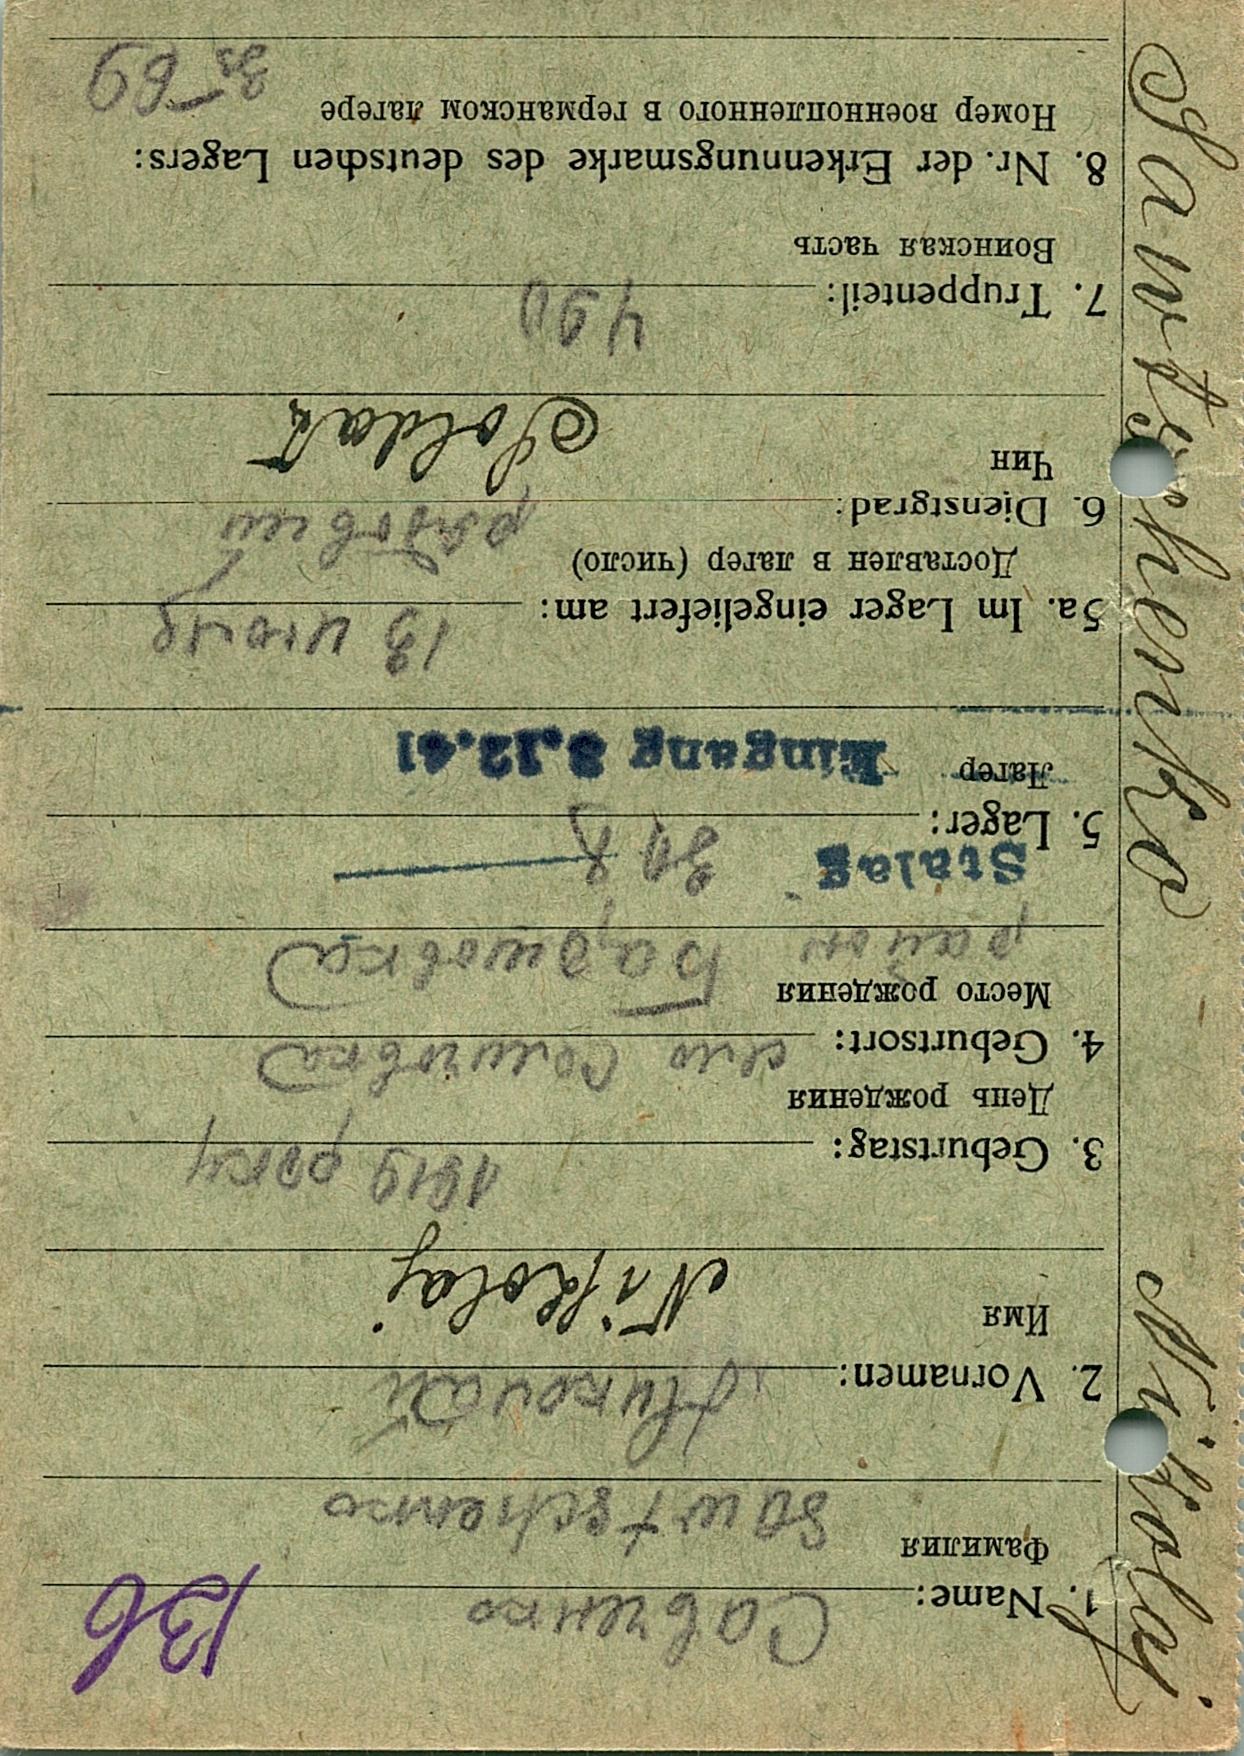 13b
1. Name: Савченко
Фамилия
Sawtschenko
2. Vornamen: Миколай
Имя
Nikolaj
3. Geburtstag: 1919 року
День рождения
4. Geburtsort: село
Место рождения
район Баришовка
Stalag
5. Lager:
Лагер
Eingang 3.12.41
5a. Im Lager eingeliefert am: 13
Доставлен в лагер (число)
6. Dienstgrad: рядовий
Чин
Soldat
7. Truppenteil: 490
Воинская часть
8. Nr. der Erkennungsmarke des deutschen Lagers:
Номер военнопленного в германском лагере
Sawtschenko Nikolaj